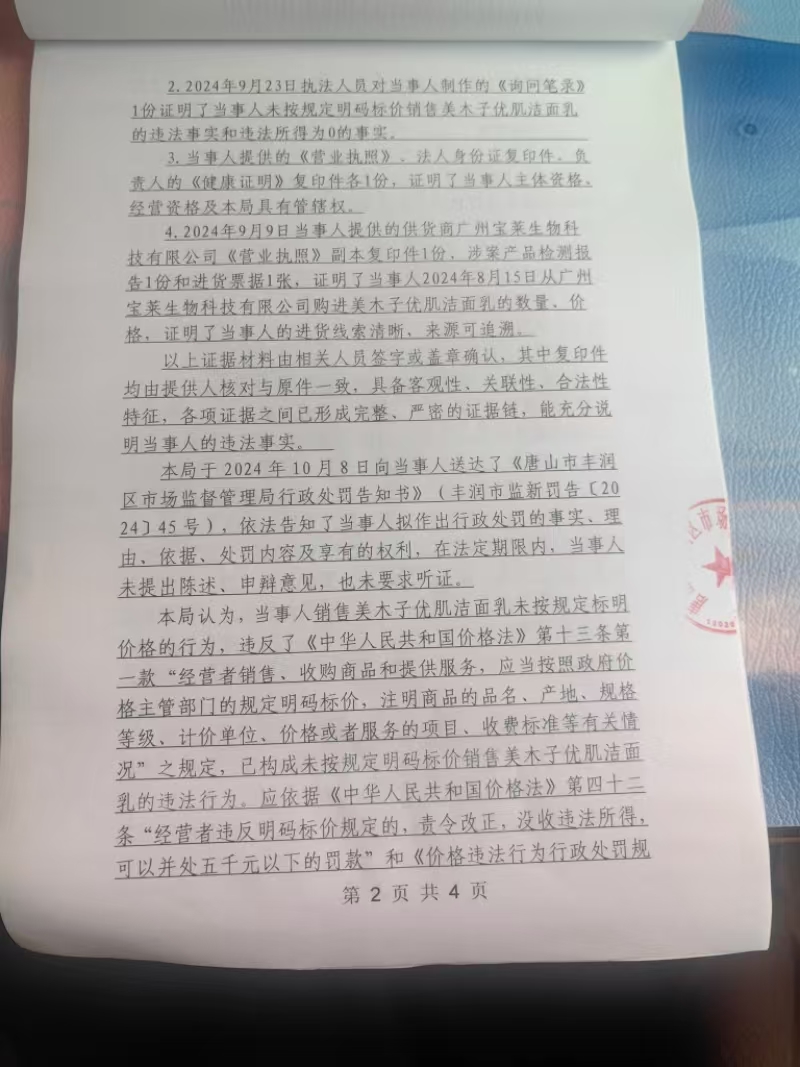 2.2024年9月23日执法人员对当事人制作的《询问笔录》
1份证明了当事人未按规定明码标价销售美木子优肌洁面乳
的违法事实和违法所得为0的事实。
3.当事人提供的《营业执照》、法人身份证复印件、负
责人的《健康证明》复印件各1份，证明了当事人主体资格、
经营资格及本局具有管辖权。
4.2024年9月9日当事人提供的供货商广州宝莱生物科
技有限公司《营业执照》副本复印件1份，涉案产品检测报
告1份和进货票据1张，证明了当事人2024年8月15日从广州
宝莱生物科技有限公司购进美木子优肌洁面乳的数量、价
格，证明了当事人的进货线索清晰，来源可追溯。
以上证据材料由相关人员签字或盖章确认，其中复印件
均由提供人核对与原件一致，具备客观性、关联性、合法性
特征，各项证据之间已形成完整、严密的证据链，能充分说
明当事人的违法事实。
本局于2024年10月8日向当事人送达了《唐山市丰润
区市场监督管理局行政处罚告知书》（丰润市监新罚告〔20
24〕45号），依法告知了当事人拟作出行政处罚的事实、理
由、依据、处罚内容及享有的权利，在法定期限内，当事人
未提出陈述、申辩意见，也未要求听证。
本局认为，当事人销售美木子优肌洁面乳未按规定标明
价格的行为，违反了《中华人民共和国价格法》第十三条第
一款“经营者销售、收购商品和提供服务，应当按照政府价
格主管部门的规定明码标价，注明商品的品名、产地、规格
等级、计价单位、价格或者服务的项目、收费标准等有关情
况”之规定，已构成未按规定明码标价销售美木子优肌洁面
乳的违法行为。应依据《中华人民共和国价格法》第四十二
条“经营者违反明码标价规定的，责令改正，没收违法所得，
可以并处五千元以下的罚款”和《价格违法行为行政处罚规
第 2 页 共 4 页
区市场